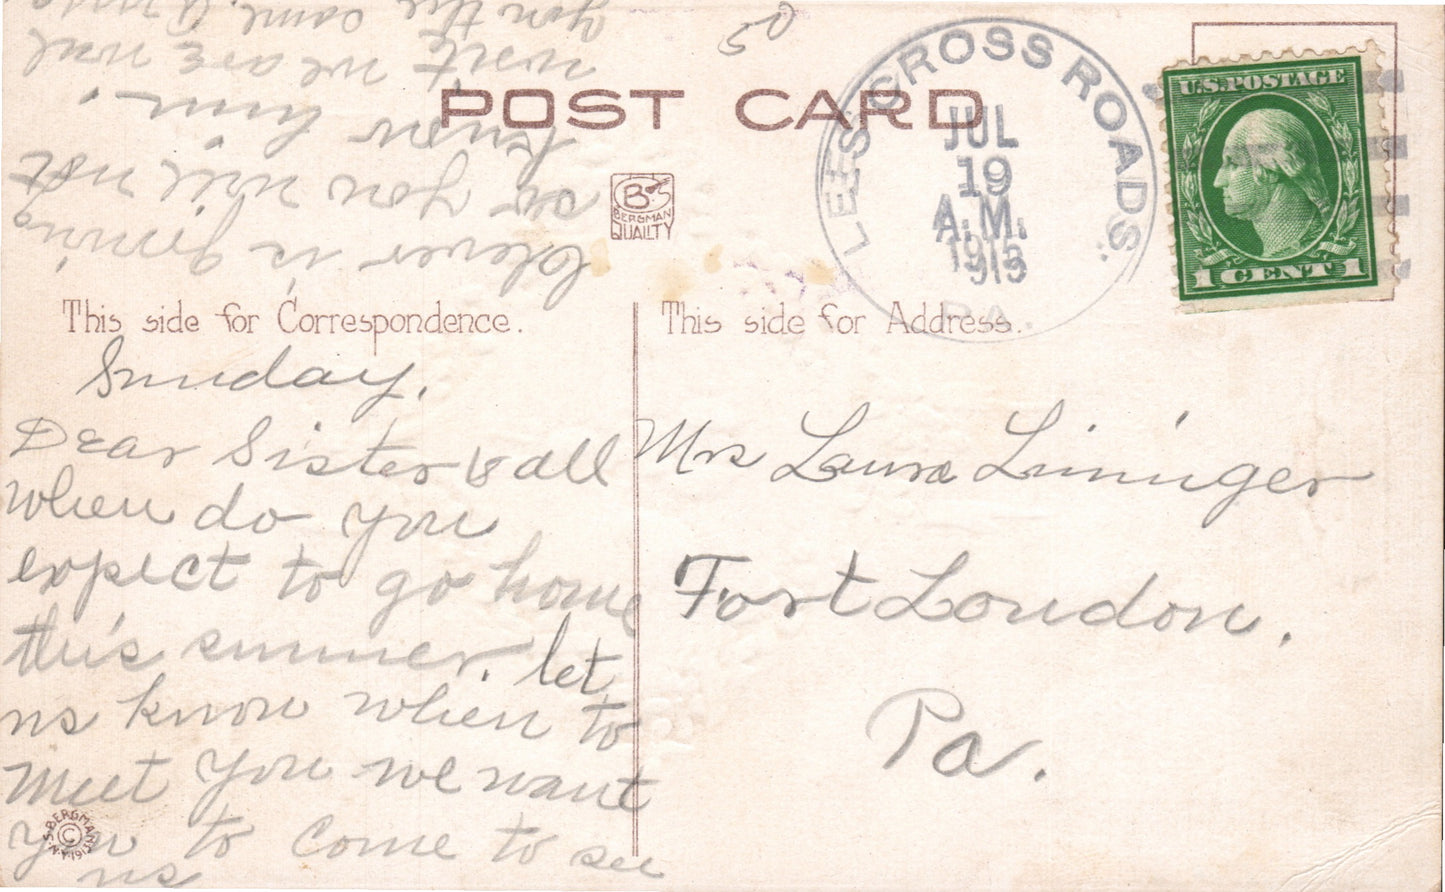 50
POST CARD
LEES CROSS ROADS.
JUL
19
A.M.
1913
PA.
U.S. POSTAGE
1 CENT 1
B S
BERGMAN
QUALITY
This side for Correspondence.
This side for Address.
Sunday.
Dear Sister & all
when do you
expect to go home
this summer. let
us know when to
meet you we want
you to come to see
us
Clever is growing
so you will not
know him.
well we are well
you the same
Mrs Laura Lininger
Fort Loudon.
Pa.
S. BERGMAN
©
N.Y. 1913